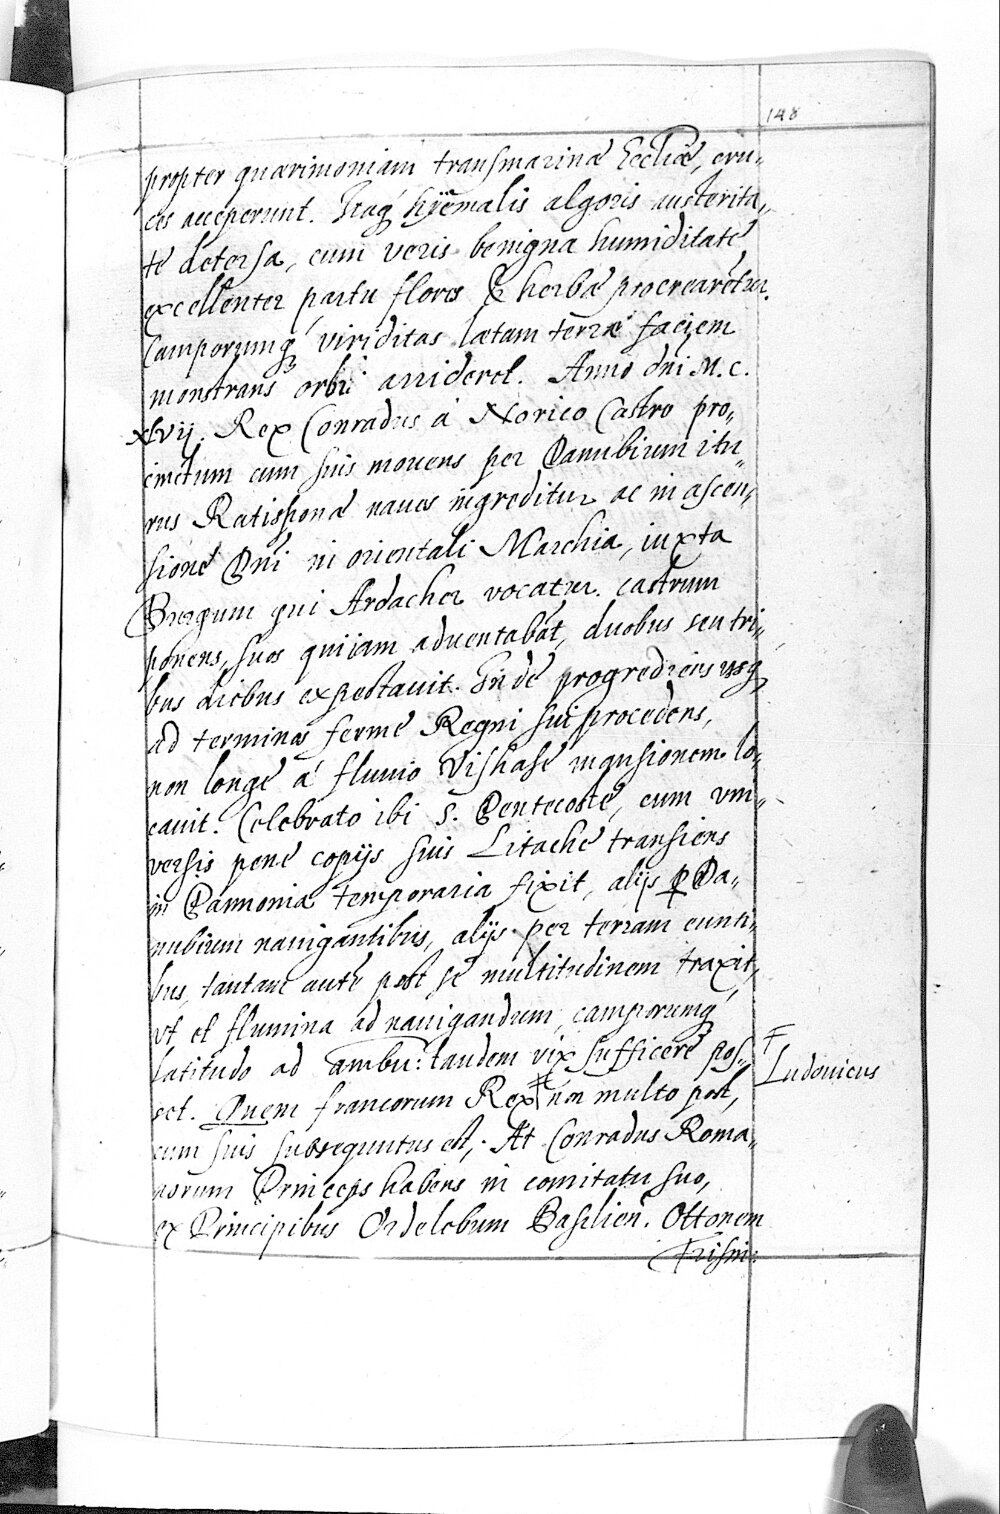 148
propter quærimoniam transmarinæ Eccliæ, cru„
ces acceperunt. Itaq́ hÿemalis algoris austerita„
te detersa, cum veris benigna humiditate
excellenter partu flores & herbæ procrearẽtur.
Camporumq́ viriditas lætam terræ faciem
monstrans orbi arrideret. Anno dni M. C.
XLvij. Rex Conradus á Norico Castro pro„
cinctum cum suis mouens per Danubium itu„
rus Ratisponæ naues ingreditur ac in ascen„
sione Dñi in orientali Marchia, iuxta
Burgum qui Ardacher vocatur. castrum
ponens, suos qui iam aduentabãt, duobus seu tri„
bus diebus expectauit. Inde progrediens usq́
ad terminos ferme Regni sui procedens,
non longe á fluuio Vishahe mansionem lo„
cauit. Celebrato ibi S. Pentecoste, cum vni„
versis pene copijs suis Litache transiens
in Pannonia temporaria fixit, alijs p Da„
nubium nauigantibus, alijs per terram eunti„
bus, tantam autẽ post se multitudinem traxit,
vt et flumina ad nauigandum, camporumq́
latitudo ad ambu: landem vix sufficere pos„
set. Quem francorum Rex ‡ non multo post,
‡ Ludouicus
cum suis subsequutus est,. At Conradus Roma„
norum Princeps habens in comitatu suo,
ex Principibus Ordelebum Basilien̄. Ottonem
Frisin: